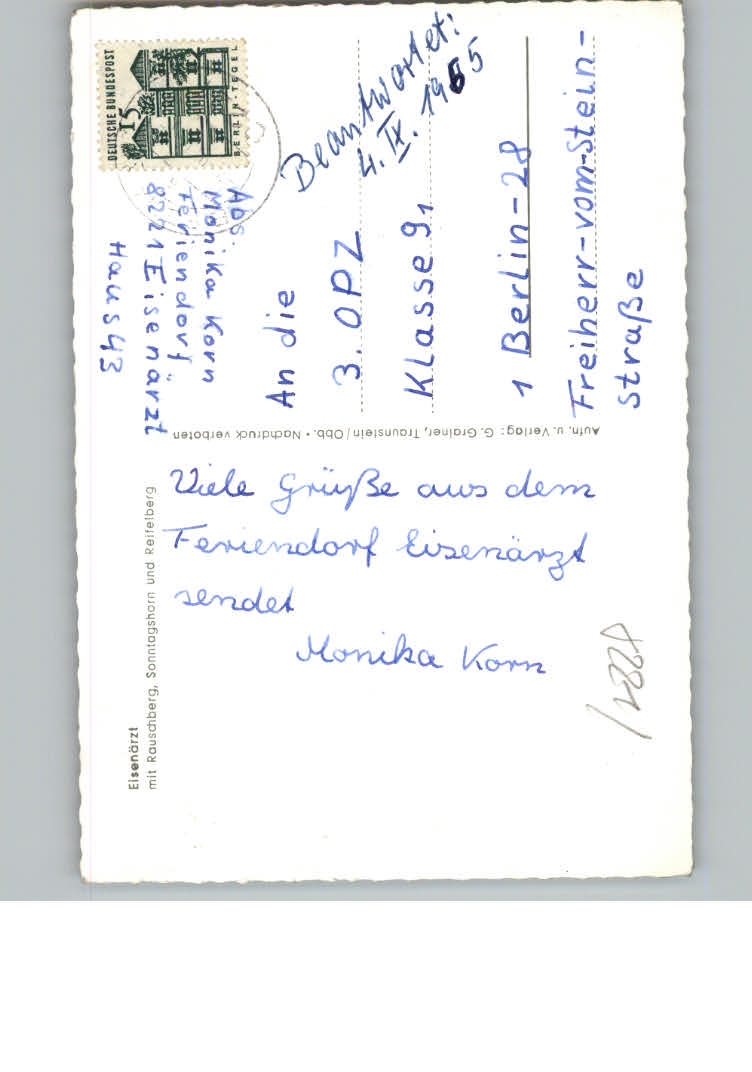 Eisenärzt
mit Rauschberg, Sonntagshorn und Reifelberg
Viele Grüße aus dem
Feriendorf Eisenärzt
sendet
Monika Korn
Aufn. u. Verlag: G. Grainer, Traunstein/Obb. • Nachdruck verboten
Abs.
Monika Korn
Feriendorf
8221 Eisenärzt
Haus 43
DEUTSCHE BUNDESPOST
15
BERLIN-TEGEL
Beantwortet:
4. IX. 1965
An die
3. OPZ
Klasse 91
1 Berlin-28
Freiherr-vom-Stein-
Straße
8221